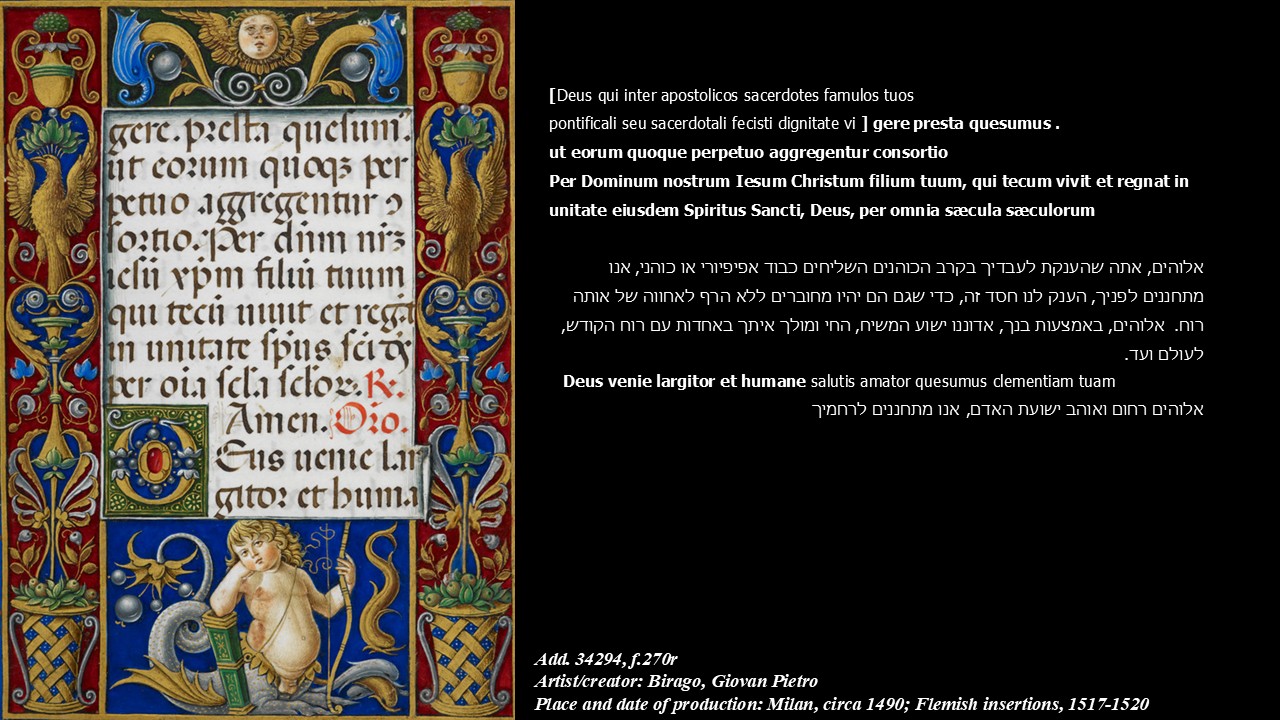 gere. presta quesum᷒.
ut eorum quoqꝫ per
petuo aggregentur ↄ
sortio. Per dn̄m nr̄ꝫ
iesū xp̄m filiū tuum
qui tecū uiuit et regn̄t
in unitate sp̄us sc̄i ds̄
per oīa scl̄a sclor̄ꝝ. R:.
Amen. Oīo.
Eus uenie lar
gitor et huma
[Deus qui inter apostolicos sacerdotes famulos tuos
pontificali seu sacerdotali fecisti dignitate vi ] gere presta quesumus .
ut eorum quoque perpetuo aggregentur consortio
Per Dominum nostrum Iesum Christum filium tuum, qui tecum vivit et regnat in
unitate eiusdem Spiritus Sancti, Deus, per omnia sæcula sæculorum
אלוהים, אתה שהענקת לעבדיך בקרב הכוהנים השליחים כבוד אפיפיורי או כוהני, אנו
מתחננים לפניך, הענק לנו חסד זה, כדי שגם הם יהיו מחוברים ללא הרף לאחווה של אותה
רוח.  אלוהים, באמצעות בנך, אדוננו ישוע המשיח, החי ומולך איתך באחדות עם רוח הקודש,
לעולם ועד.
Deus venie largitor et humane salutis amator quesumus clementiam tuam
אלוהים רחום ואוהב ישועת האדם, אנו מתחננים לרחמיך
Add. 34294, f.270r
Artist/creator: Birago, Giovan Pietro
Place and date of production: Milan, circa 1490; Flemish insertions, 1517-1520